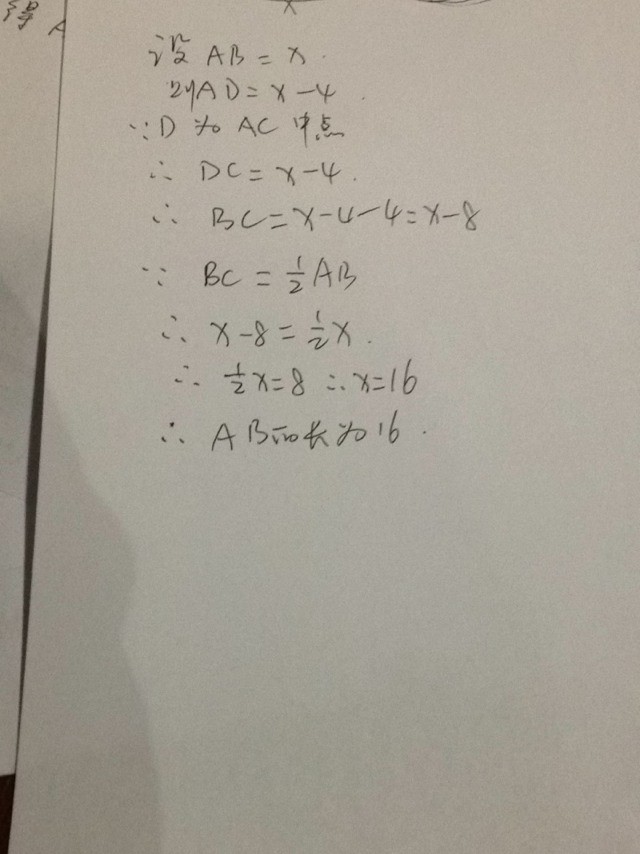 设 AB = x .
则AD = x - 4 .
∵ D为AC中点
∴ DC = x - 4 .
∴ BC = x - 4 - 4 = x - 8
∵ BC = 1/2 AB
∴ x - 8 = 1/2 x .
∴ 1/2 x = 8 ∴ x = 16
∴ AB的长为16 .